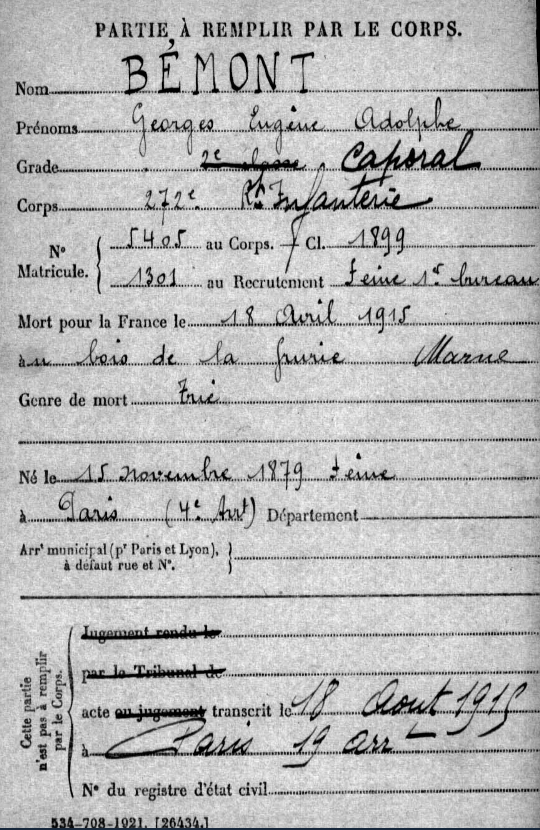 PARTIE À REMPLIR PAR LE CORPS.
Nom BÉMONT
Prénoms Georges Eugène Adolphe
Grade 2e classe Caporal
Corps 272e Rgt Infanterie
N° Matricule. { 5405 au Corps. Cl. 1899
1301 au Recrutement Seine 1er bureau
Mort pour la France le 18 Avril 1915
au bois de la grurie Marne
Genre de mort Tué
Né le 15 novembre 1879 Seine
à Paris (4e Arrt) Département
Arrt municipal (pr Paris et Lyon), à défaut rue et N°. }
Cette partie n'est pas à remplir par le Corps. {
Jugement rendu le
par le Tribunal de
acte ou jugement transcrit le 18 Aout 1915
à Paris 19 arr
N° du registre d'état civil
534-708-1921. [26434.]